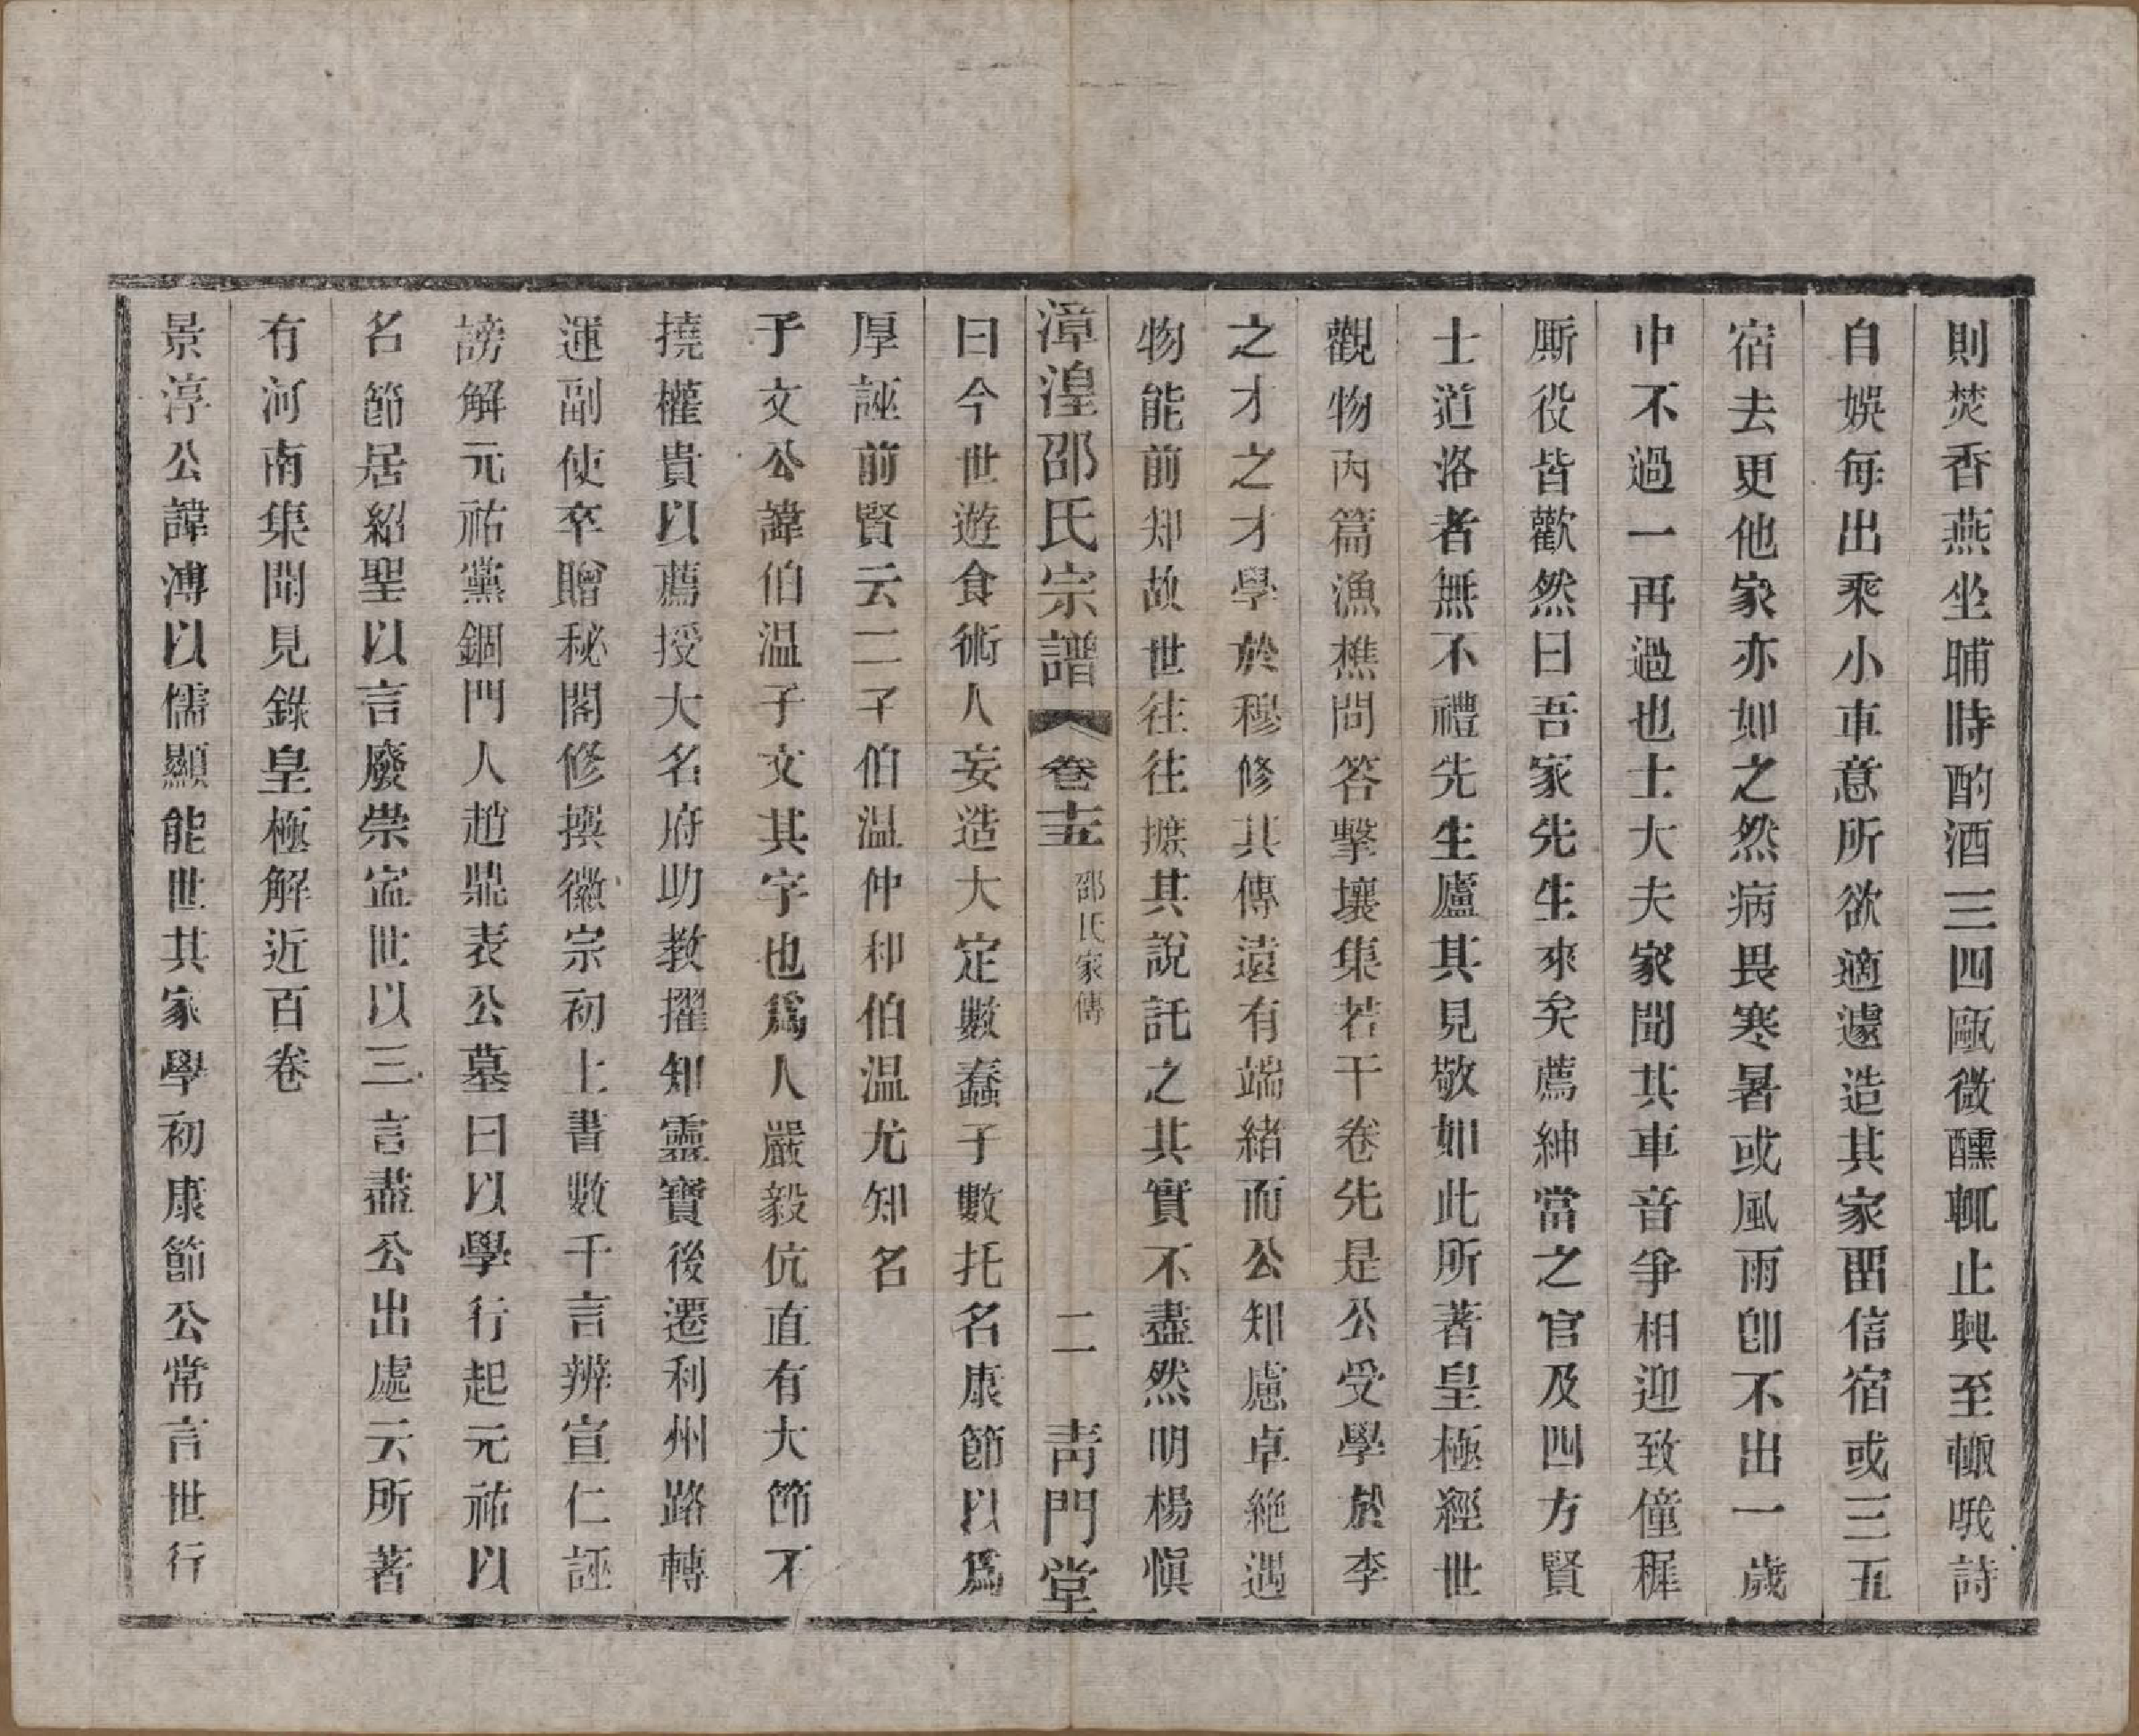 則焚香燕坐晡時酌酒三四甌微醺輒止興至輒哦詩
自娛每出乘小車意所欲適遽造其家畱信宿或三五
宿去更他家亦如之然病畏寒暑或風雨卽不出一歲
中不過一再過也士大夫家聞其車音爭相迎致僮穉
厮役皆歡然曰吾家先生來矣薦紳當之官及四方賢
士道洛者無不禮先生廬其見敬如此所著皇極經世
觀物內篇漁樵問答擊壤集若干卷先是公受學於李
之才之才學於穆修其傳遠有端緒而公知慮卓絶遇
物能前知故世往往摭其說託之其實不盡然明楊愼
漳湟邵氏宗譜 卷十五 邵氏家傳 二 靑門堂
曰今世遊食術人妄造大定數蠢子數托名康節以爲
厚誣前賢云二子伯温仲和伯温尤知名
子文公諱伯温子文其字也爲人嚴毅伉直有大節不
撓權貴以薦授大名府助教擢知靈寶後遷利州路轉
運副使卒贈秘閣修撰徽宗初上書數千言辨宣仁誣
謗解元祐黨錮門人趙鼎表公墓曰以學行起元祐以
名節居紹聖以言廢崇寍世以三言盡公出處云所著
有河南集聞見錄皇極解近百卷
景淳公諱溥以儒顯能世其家學初康節公常言世行